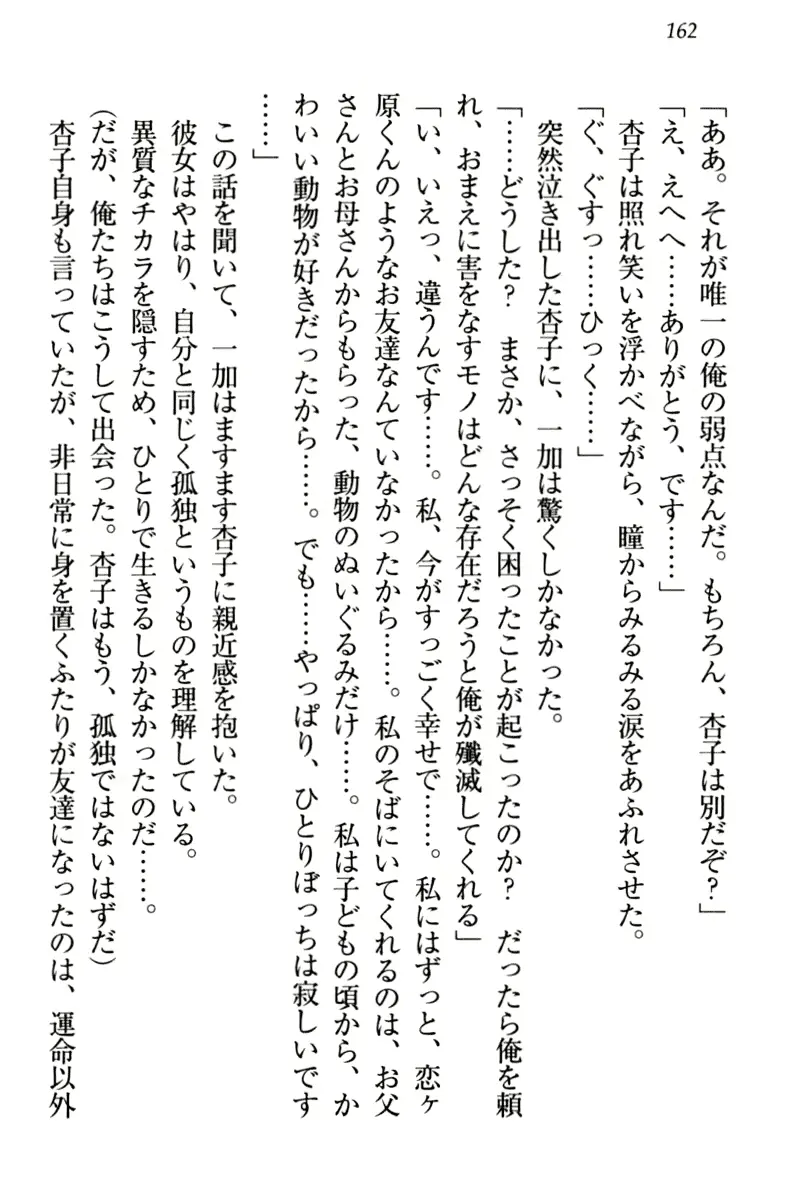 162
「ああ。それが唯一の俺の弱点なんだ。もちろん、杏子は別だぞ？」
「え、えへへ……ありがとう、です……」
　杏子は照れ笑いを浮かべながら、瞳からみるみる涙をあふれさせた。
「ぐ、ぐすっ……ひっく……」
　突然泣き出した杏子に、一加は驚くしかなかった。
「……どうした？　まさか、さっそく困ったことが起こったのか？　だったら俺を頼
れ、おまえに害をなすモノはどんな存在だろうと俺が殲滅してくれる」
「い、いえっ、違うんです……。私、今がすっごく幸せで……。私にはずっと、恋ヶ
原くんのようなお友達なんていなかったから……。私のそばにいてくれるのは、お父
さんとお母さんからもらった、動物のぬいぐるみだけ……。私は子どもの頃から、か
わいい動物が好きだったから……。でも……やっぱり、ひとりぼっちは寂しいです
……」
　この話を聞いて、一加はますます杏子に親近感を抱いた。
　彼女はやはり、自分と同じく孤独というものを理解している。
　異質なチカラを隠すため、ひとりで生きるしかなかったのだ……。
（だが、俺たちはこうして出会った。杏子はもう、孤独ではないはずだ）
　杏子自身も言っていたが、非日常に身を置くふたりが友達になったのは、運命以外